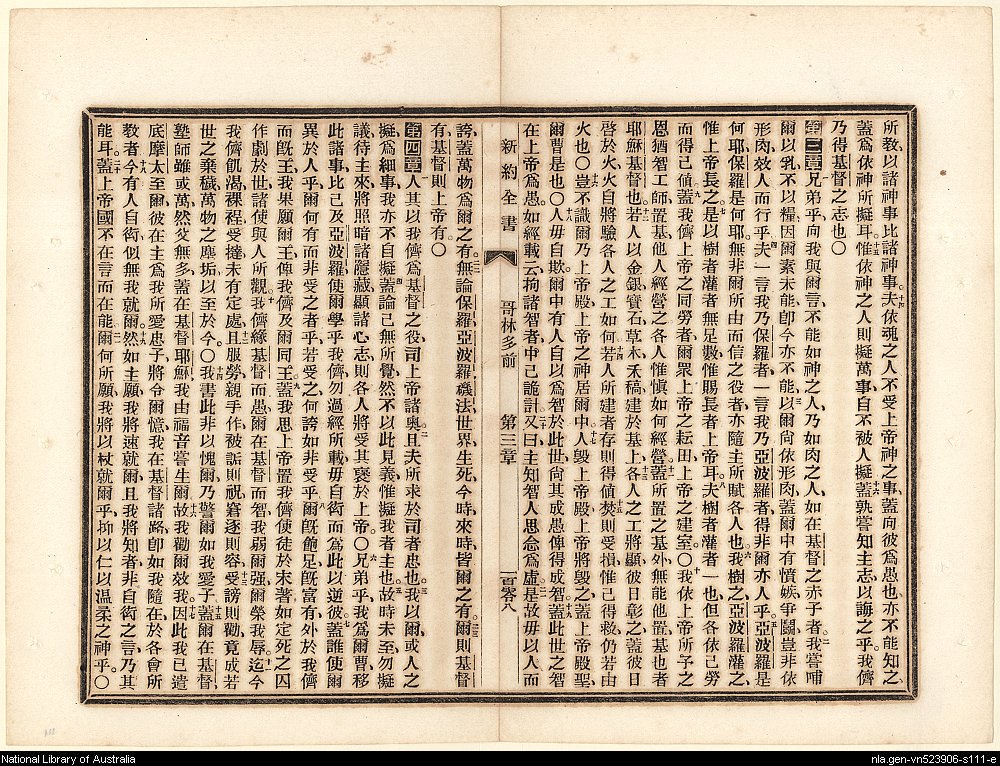 所教以諸神事比諸神事夫依魂之人不受上帝神之事蓋向彼爲愚也亦不能知之、
蓋爲依神所擬耳惟依神之人則擬萬事自不被人擬蓋孰嘗知主志以誨之乎我儕
乃得基督之志也〇
第三章兄弟乎向我與爾言不能如神之人乃如肉之人如在基督之赤子者我嘗哺
爾以乳不以糧因爾素未能卽今亦不能以爾尙依形肉蓋爾中有憤嫉爭鬭豈非依
形肉效人而行乎夫一言我乃保羅者一言我乃亞波羅者得非爾亦人乎亞波羅是
何耶保羅是何耶無非爾所由而信之役者亦隨主所賦各人也我樹之亞波羅灌之、
惟上帝長之是以樹者灌者無足數惟賜長者上帝耳夫樹者灌者一也但各依己勞
而得己値蓋我儕上帝之同勞者爾衆上帝之耘田上帝之建室〇我依上帝所予之
恩猶智工師置基他人經營之各人惟愼如何經營蓋所置之基外無能他置基也者
耶穌基督也若人以金銀寶石草木禾稿建於基上各人之工將顯彼日彰之蓋彼日
啓於火火自將驗各人之工如何若人所建者存則得値焚則受損惟己得救仍若由
火也〇豈不識爾乃上帝殿上帝之神居爾中人毀上帝殿上帝將毀之蓋上帝殿聖
爾曹是也〇人毋自欺爾中有人自以爲智於此世尙其成愚俾得成智蓋此世之智
在上帝爲愚如經載云拘諸智者中己詭計又曰主知智人思念爲虛是故毋以人而
新約全書
哥林多前
第三章
一百零八
誇蓋萬物爲爾之有無論保羅亞波羅磯法世界生死今時來時皆爾之有爾則基督
有基督則上帝有〇
第四章人其以我儕爲基督之役司上帝諸奧且夫所求於司者忠也我以爾或人之
擬爲細事我亦不自擬蓋論己無所覺然不以此見義惟擬我者主也故時未至勿擬
議待主來將照暗諸隱藏顯諸心志則各人將受其褒於上帝〇兄弟乎我爲爾曹移
此諸事比己及亞波羅使爾學乎我儕勿過經所載毋自衒而爲此以逆彼蓋誰使爾
異於人乎爾何有而非受之者乎若受之何誇如非受乎爾旣飽足旣富有外於我儕
而旣王我果願爾王俾我儕及爾同王蓋我思上帝置我儕使徒於末著如定死之囚
作劇於世諸使與人所觀我儕緣基督而愚爾在基督而智我弱爾强爾榮我辱迄今
我儕飢渴裸裎受撻未有定處且服勞親手作被詬則祝窘逐則容受謗則勸竟成若
世之棄穢萬物之塵垢以至於今〇我書此非以愧爾乃警爾如我愛子蓋爾在基督
塾師雖或萬然父無多蓋在基督耶穌我由福音嘗生爾故我勸爾效我因此我已遣
底摩太至爾彼在主爲我所愛忠子將令爾憶我在基督諸路卽如我隨在於各會所
敎者今有人自衒似無我就爾然如主願我將速就爾且我將知者非自衒之言乃其
能耳蓋上帝國不在言而在能爾何所願我將以杖就爾乎抑以仁以溫柔之神乎〇
National Library of Australia
nla.gen-vn523906-s111-e